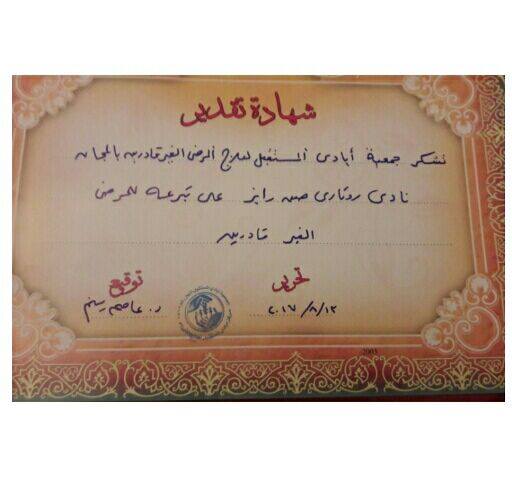 شهادة تقدير
تشكر جمعية أيادى المستقبل لعلاج المرضى الغير قادرين بالمجان
نادى روتارى صن رايز على تبرعه للمرضى
الغير قادرين
تحرير توقيع
٢٠١٧/٨/١٢ د. عاصم
2003